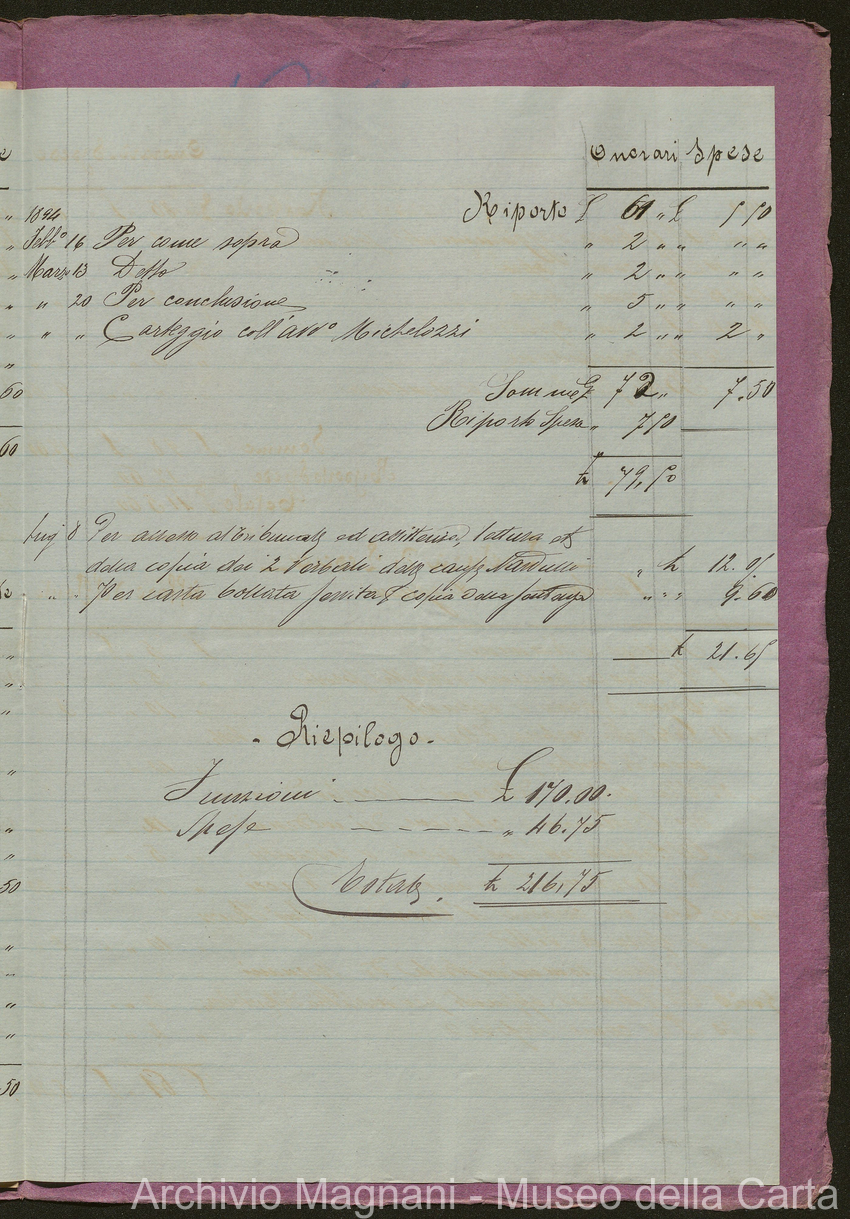 Onorari Spese
1894 Riporto £ 61 " £ 5 50
" Febb° 16 Per come sopra " 2 " " " "
" Marzo 13 Detto " 2 " " " "
" " 20 Per conclusione " 5 " " " "
" " " Carteggio coll'avv° Michelozzi " 2 " " 2 "
60 Somme £ 72 " 7.50
Riporto Spese " 7 50
60
£ 79,50
Lug 8 Per accesso al Tribunale ed assistenza, lettura
della copia dei 2 Verbali della causa " £ 12.05
" " Per carta bollata servita copia della sentenza " " " 9.60
£ 21.65
- Riepilogo -
Funzioni £ 170.00.
Spese " 46.75
50 Totale £ 216,75
50
Archivio Magnani - Museo della Carta